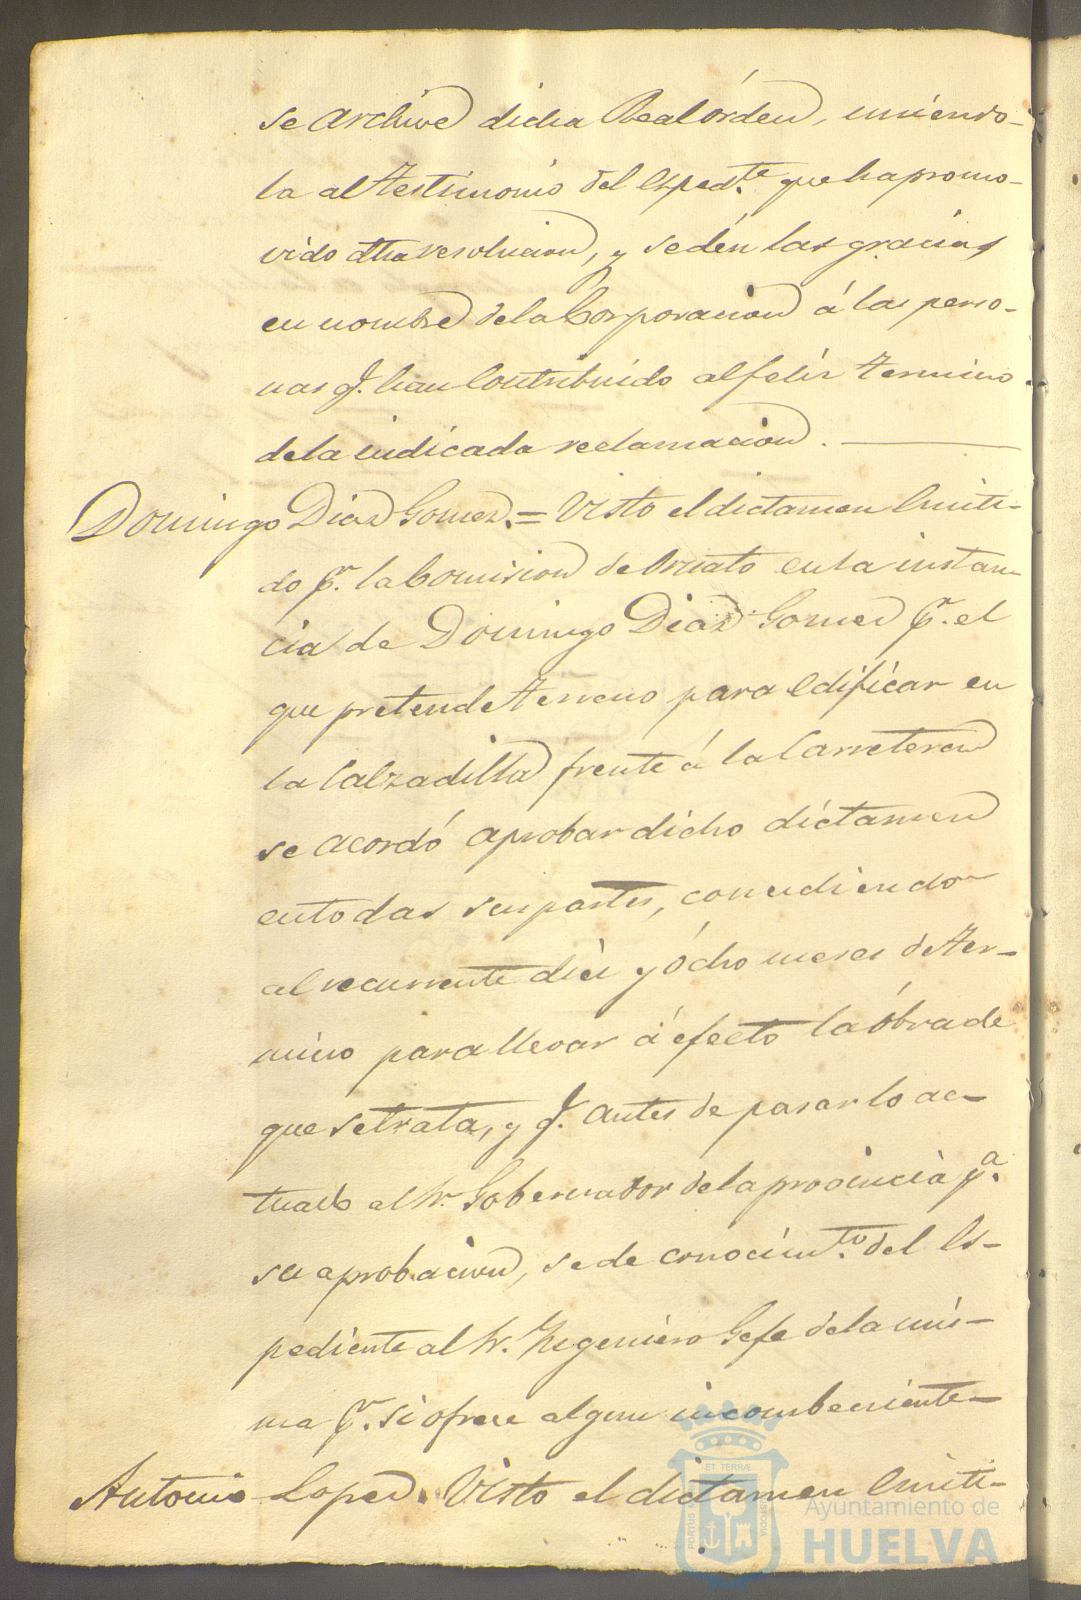 se archive dicha Real órden, uniendo-
la al testimonio del esped.te que ha promo-
vido dha resolucion, y se dén las gracias
en nombre de la Corporacion á las perso-
nas q.e han Contribuido al feliz termino
de la indicada reclamacion.
Domingo Diaz Gomez. = Visto el dictamen Emiti-
do p.r la Comision de Ornato en la instan-
cia de Domingo Diaz Gomez p.r el
que pretende terreno para Edificar en
la Calzadilla frente á la Carretera
se acordó aprobar dicho dictamen
en todas sus partes, concediendo
al recurrente diez y ócho meses de ter-
mino para llevar á efecto la óbra de
que se trata, y q.e antes de pasar lo ac-
tuado al Sr. Gobernador de la provincia p.a
su aprobacion, se de conocim.to del Es-
pediente al Sr. Yngeniero Gefe de la mis-
ma p.r si ofrece algun incombeniente
Antonio Lopez. Visto el dictamen Emiti-
ET TERRÆ
PORTUS
CUSTODIA
Ayuntamiento de
HUELVA